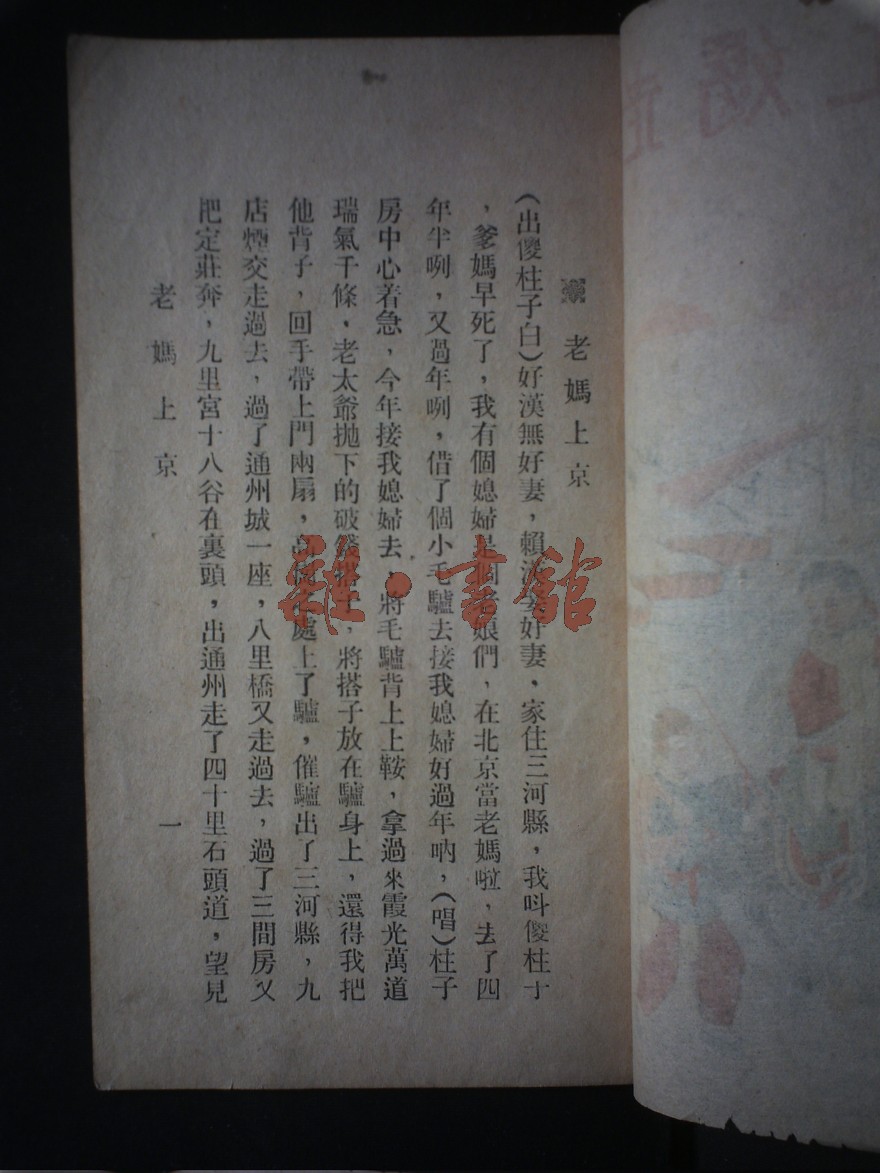 老媽上京
(出傻柱子白)好漢無好妻,賴漢娶好妻,家住三河縣,我呌傻柱子
,爹媽早死了,我有個媳婦是個老娘們,在北京當老媽啦,去了四
年半咧,又過年咧,借了個小毛驢去接我媳婦好過年吶,(唱)柱子
房中心着急,今年接我媳婦去,將毛驢背上上鞍,拿過來霞光萬道
瑞氣千條,老太爺拋下的破 搭子,將搭子放在驢身上,還得我把
他背子,回手帶上門兩扇,高 處上了驢,催驢出了三河縣,九
店煙交走過去,過了通州城一座,八里橋又走過去,過了三間房又
把定莊奔,九里宮十八谷在裏頭,出通州走了四十里石頭道,望見
老媽上京
一
雜·書館